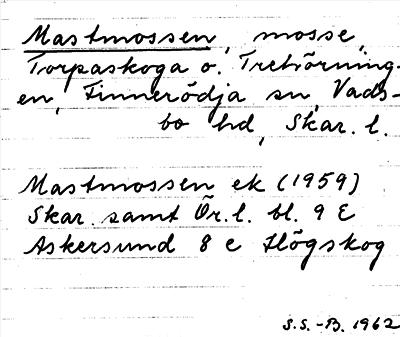 Mastmossen, mosse,
Torpaskoga o. Tretvörning-
en, Finnerödja sn, Vads-
bo hd, Skar. l.
Mastmossen ek (1959)
Skar. samt Ör. l. bl. 9 E
Askersund 8 e Högskog
S.S.-B. 1962